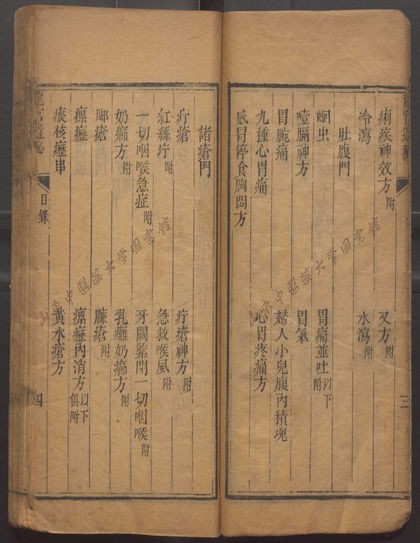 痢疾神效方附 又方附
冷瀉 水瀉附
肚腹門
蛔虫 胃寒並吐以下附
噎膈神方 胃氣
胃脘痛 婦人小兒腹內積塊
九種心胃痛 心胃疼痛方
感冒停食胸悶方
三
諸瘡門
疔瘡 疔瘡神方附
紅絲疔附 急救喉風附
一切咽喉急症附 牙關緊閉一切咽喉附
奶癰方附 乳癰奶癰方附
臁瘡 臁瘡附
瘰癧 瘰癧內消方以下俱附
痰核癧串 黃水瘡方
目錄
四
中醫藥大學圖書館
中醫藥大學圖書館